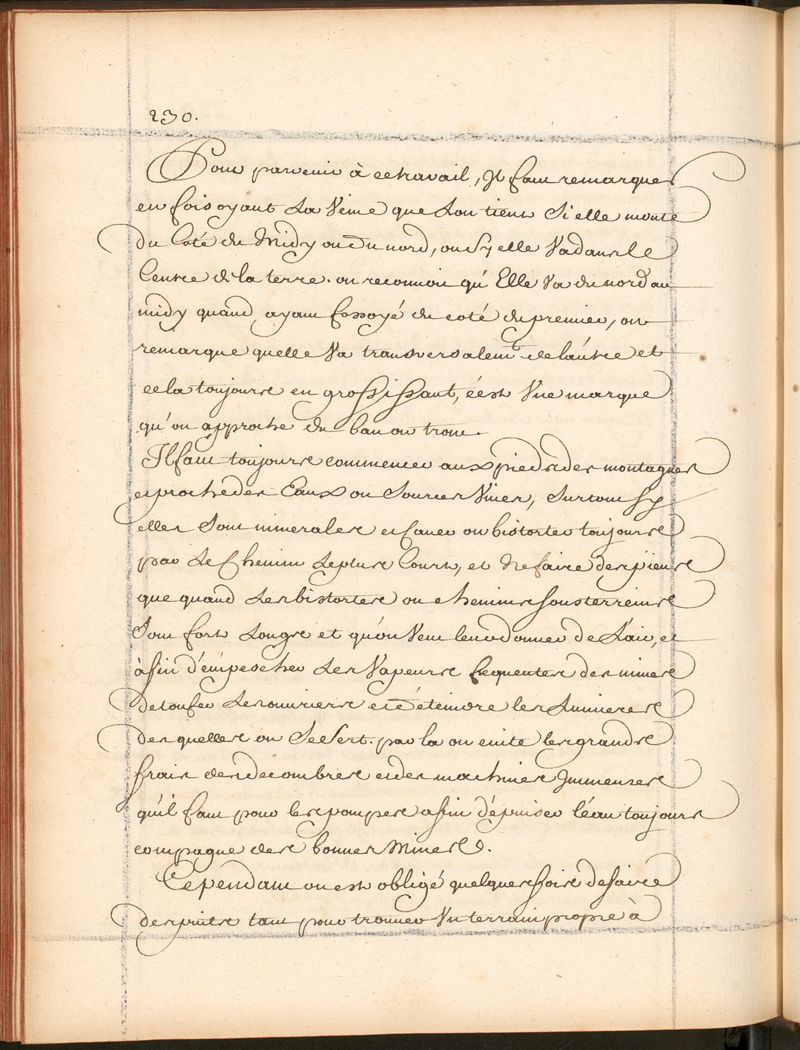 230.
Pour parvenir à ce travail, Jl faut remarquer
en fossoyant La Veine que Lon tient Si elle monte
du Coté du Midy ou du nord, ou Sy elle Va dans le
Centre de la terre. on reconnoit qu'Elle Va du nord au
midy quand ayant fossoyé du coté du premier, on
remarque quelle Va transversalemt. de lautre et
cela toujours en grossissant, c'est Vne marque
qu'on approche du banc ou tronc.
Jl faut toujours commencer aux pieds des montagnes
et proche des Eaux ou Sources Vives, Surtout Sy
elles Sont minerales et caver ou bistorter toujours
par Le Chemin Le plus Court, et Ne faire des puits
que quand Les bistortes ou chemins sousterreins
Sont fort Longs et qu'on Veut leur donner de L'air, et
àfin d'émpescher Les Vapeurs frequentes des mines
detoufer Les ouvriers et d'éteindre les Lumieres
desquelles on Se Sert. par la on evite les grands
frais des décombres et des machines Jmmenses
qu'il faut pour les pompes afin d'épuiser l'éau toujours
compagne des bonnes Mines.
Cependant on est obligé quelques fois de faire
des puits tant pour trouver Vn terrain propre à